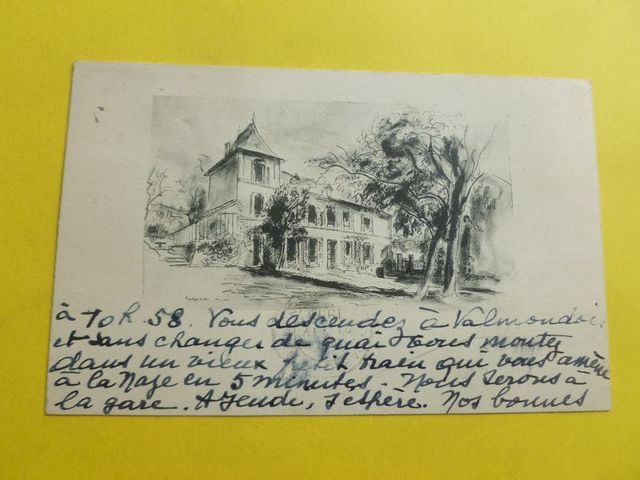 à 10h.58. Vous descendez à Valmondois
et sans changer de quai vous montez
dans un vieux petit train qui vous amène
à la Naze en 5 minutes. Nous serons à
la gare. A Jeudi, j'espère. Nos bonnes